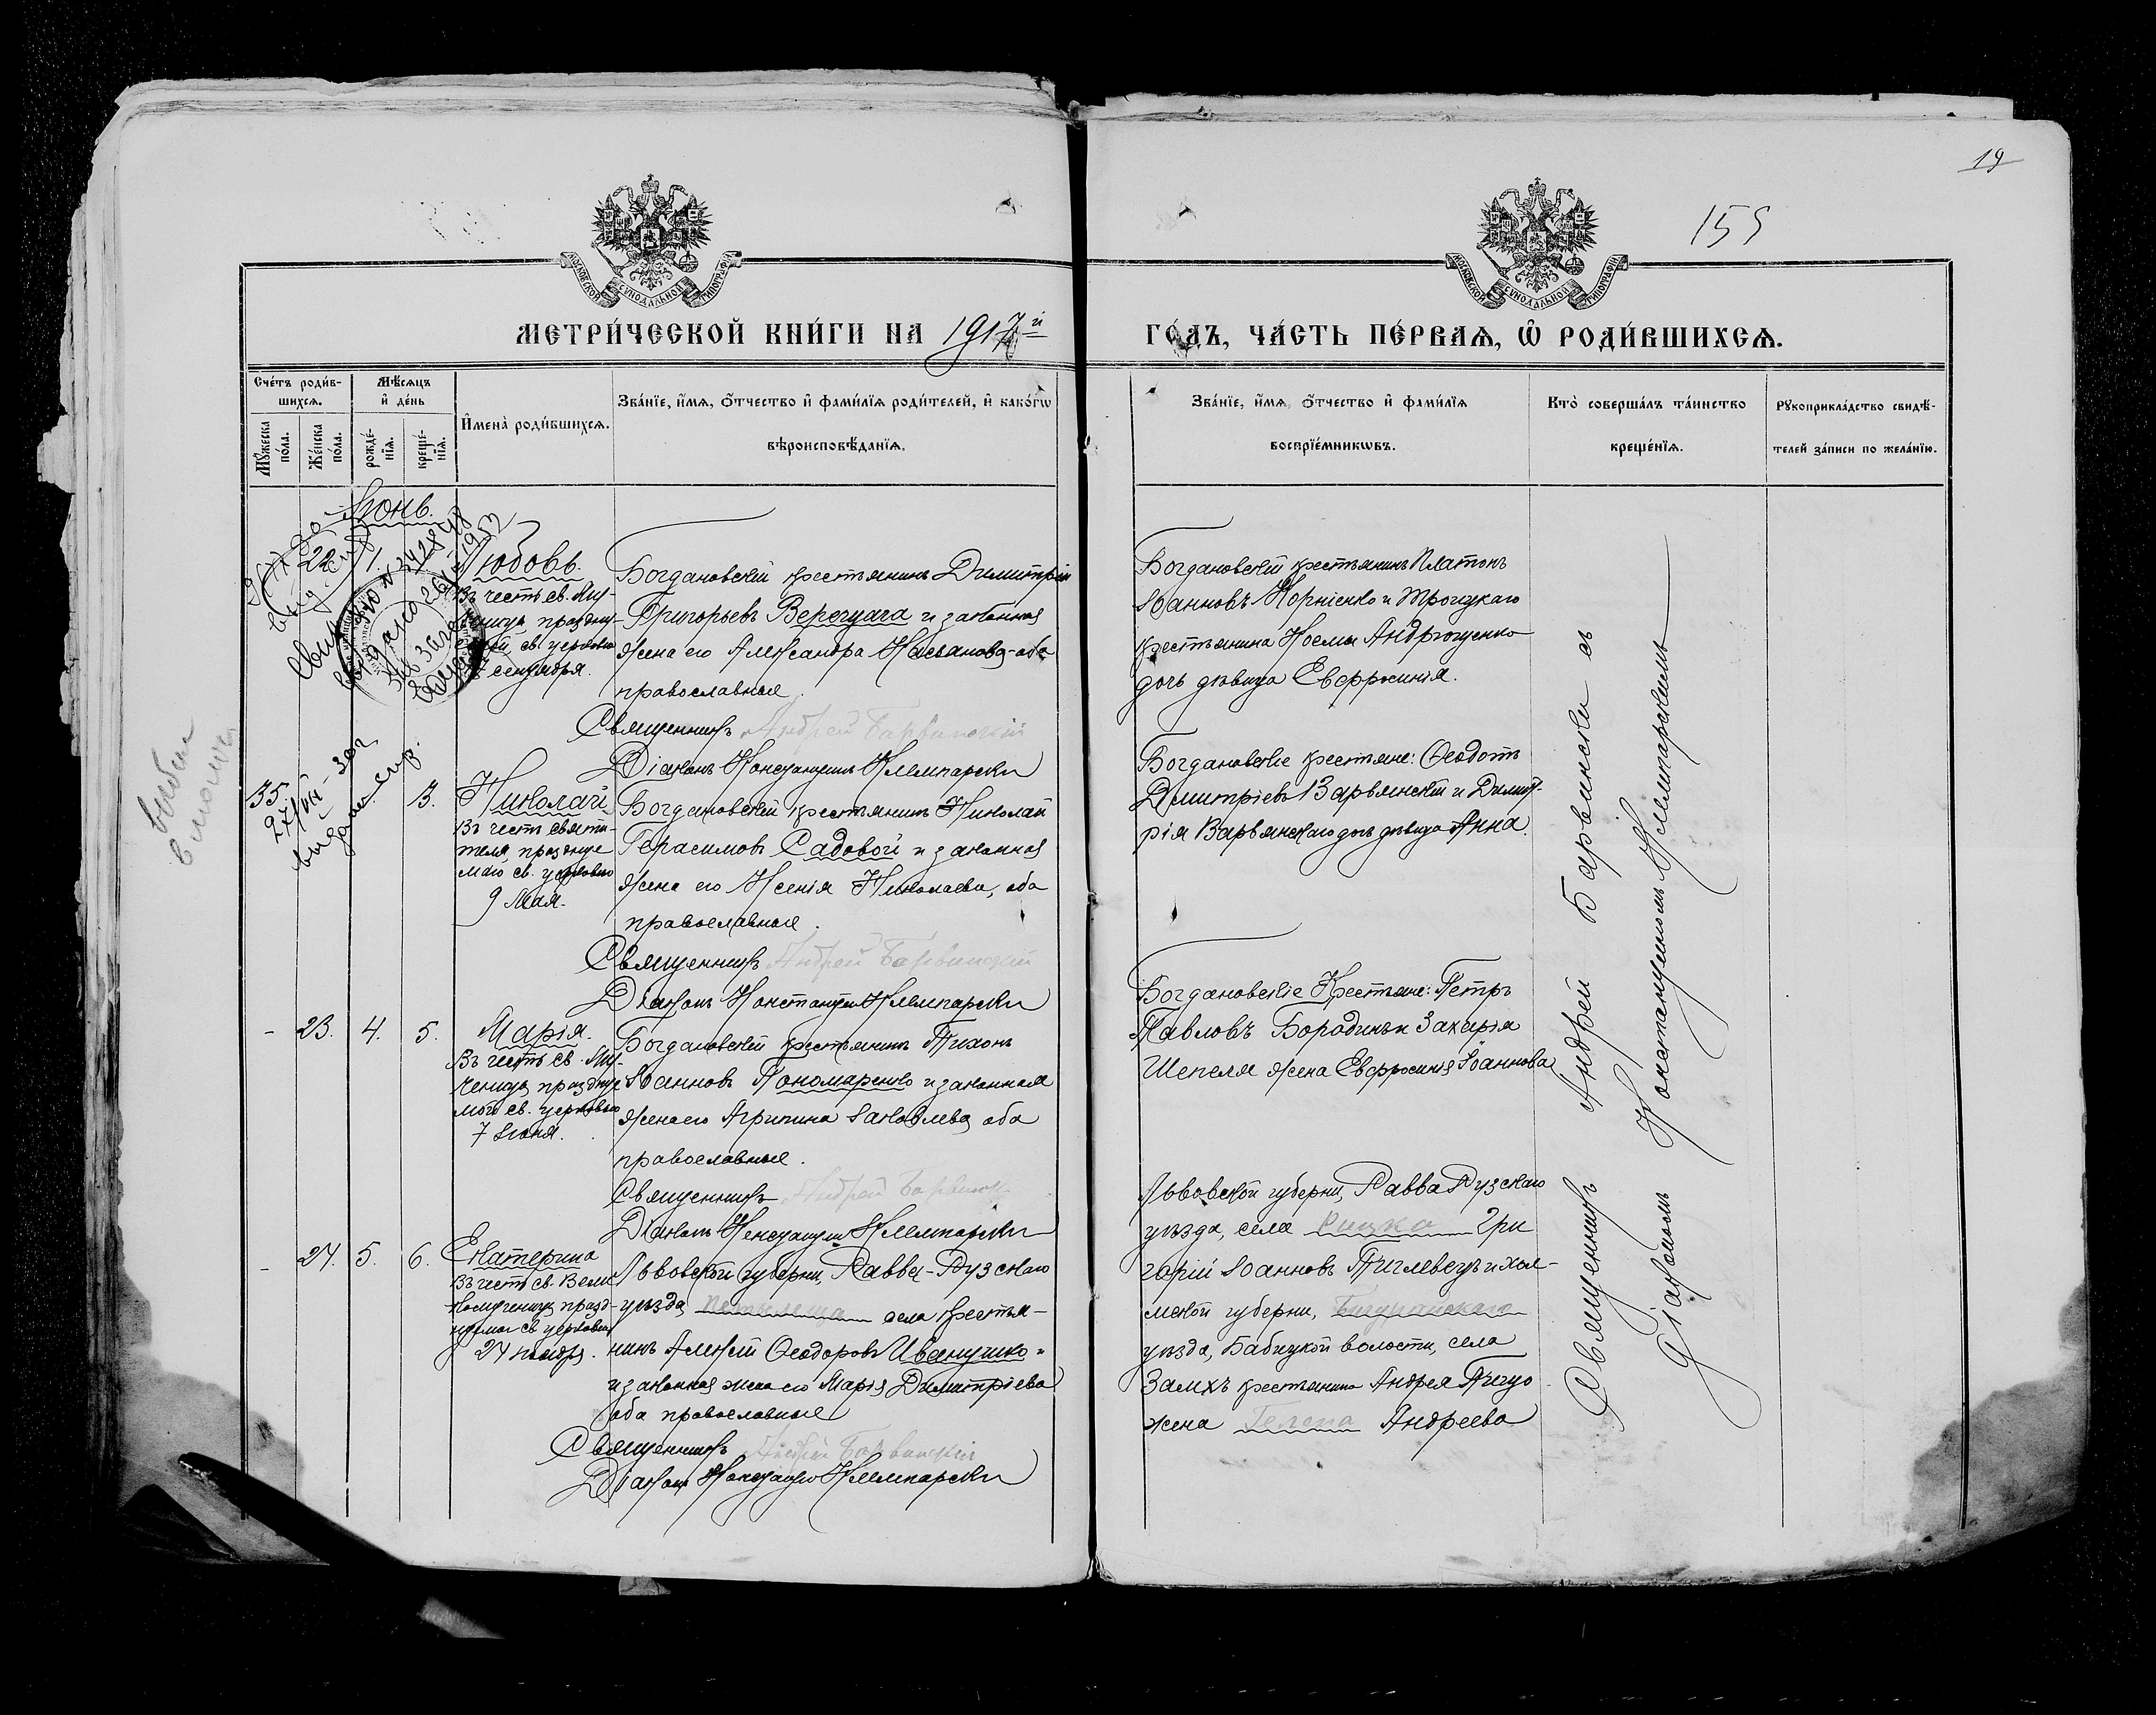 19
155
МОСКОВСКОЙ СѴНОДАЛЬНОЙ ТИПОГРАФІИ
МОСКОВСКОЙ СѴНОДАЛЬНОЙ ТИПОГРАФІИ
МЕТРИ́ЧЕСКОЙ КНИ́ГИ НА 1917й
ГО́ДЪ, ЧА́СТЬ ПЕ́РВАѦ, Ѿ РОДИ́ВШИХСѦ.
Сче́тъ роди́в-
шихсѧ.
Мѣ́сѧцъ
и҆ де́нь
Мꙋ́жеска по́ла.
Же́нска по́ла.
рожде́-
нїѧ.
креще́-
нїѧ.
И҆мена̀ роди́вшихсѧ.
Зва́нїе, и҆́мѧ, ѻ҆́тчество и҆ фами́лїѧ роди́телей, и҆ како́гѡ
вѣроисповѣ́данїѧ.
Зва́нїе, и҆́мѧ, ѻ҆́тчество и҆ фами́лїѧ
воспрїе́мникѡвъ.
Кто̀ соверша́лъ та́инство
креще́нїѧ.
Рꙋкоприкла́дство свидѣ́-
телей за́писи по жела́нїю.
Іюнь.
22. 1.
Любовь.
Въ честь св. Му-
ченицы, праздну-
св. церковью
сентября.
Богдановскій крестьянинъ Димитрій
Григорьевъ Веремчага и законная
жена его Александра Касьянова-оба
православные.
Священникъ Андрей Барвинскій
Діаконъ Константинъ Клемпарски
Богдановскій крестьянинъ Платонъ
Іоанновъ Корніенко и Троицкаго
крестьянина Космы Андрющенко
дочь дѣвица Евфросинія.
35. 3.
Николай
Въ честь святи-
теля, празднуе
маго св. церковью
9 Мая.
Богдановскій крестьянинъ Николай
Герасимовъ Садовой и законная
жена его Ксенія Николаева, оба
православные.
Священникъ Андрей Барвинскій
Діаконъ Константинъ Клемпарски
Богдановскіе крестьяне: Ѳеодотъ
Дмитріевъ Варвянскій и Димит-
рія Варвянскаго дочь дѣвица Анна.
- 23. 4. 5.
Марія.
Въ честь св. Му-
ченицы, празднуе
мой св. церковью
7 Іюня.
Богдановскій крестьянинъ Тихонъ
Іоанновъ Пономаренко и законная
жена его Агрипина Іаковлева, оба
православные.
Священникъ Андрей Барвинск
Діаконъ Константинъ Клемпарски
Богдановскіе Крестьяне: Петръ
Павловъ Бородинъ и Захарія
Шепеля жена Евфросинія Іоаннова
- 24. 5. 6.
Екатерина
Въ честь св. Вели
комученицы празд-
нуемой св. церковью
24 ноября.
Львовской губерніи, Равва-Рузскаго
уѣзда села крестья-
нинъ Алексій Ѳеодоровъ Иванушко
и законная жена его Марія Димитріева
оба православные
Священникъ Андрей Барвинскій
Діаконъ Константинъ Клемпарски
Львовской губерніи, Равва Рузскаго
уѣзда, села Гри
горій Іоанновъ и Хол-
мской губерніи,
уѣзда, Бабицкой волости, села
Замхъ крестьянина Андрея
жена Гелена Андреева
Священникъ Андрей Барвинскій съ
діакономъ Константиномъ Клемпарскимъ